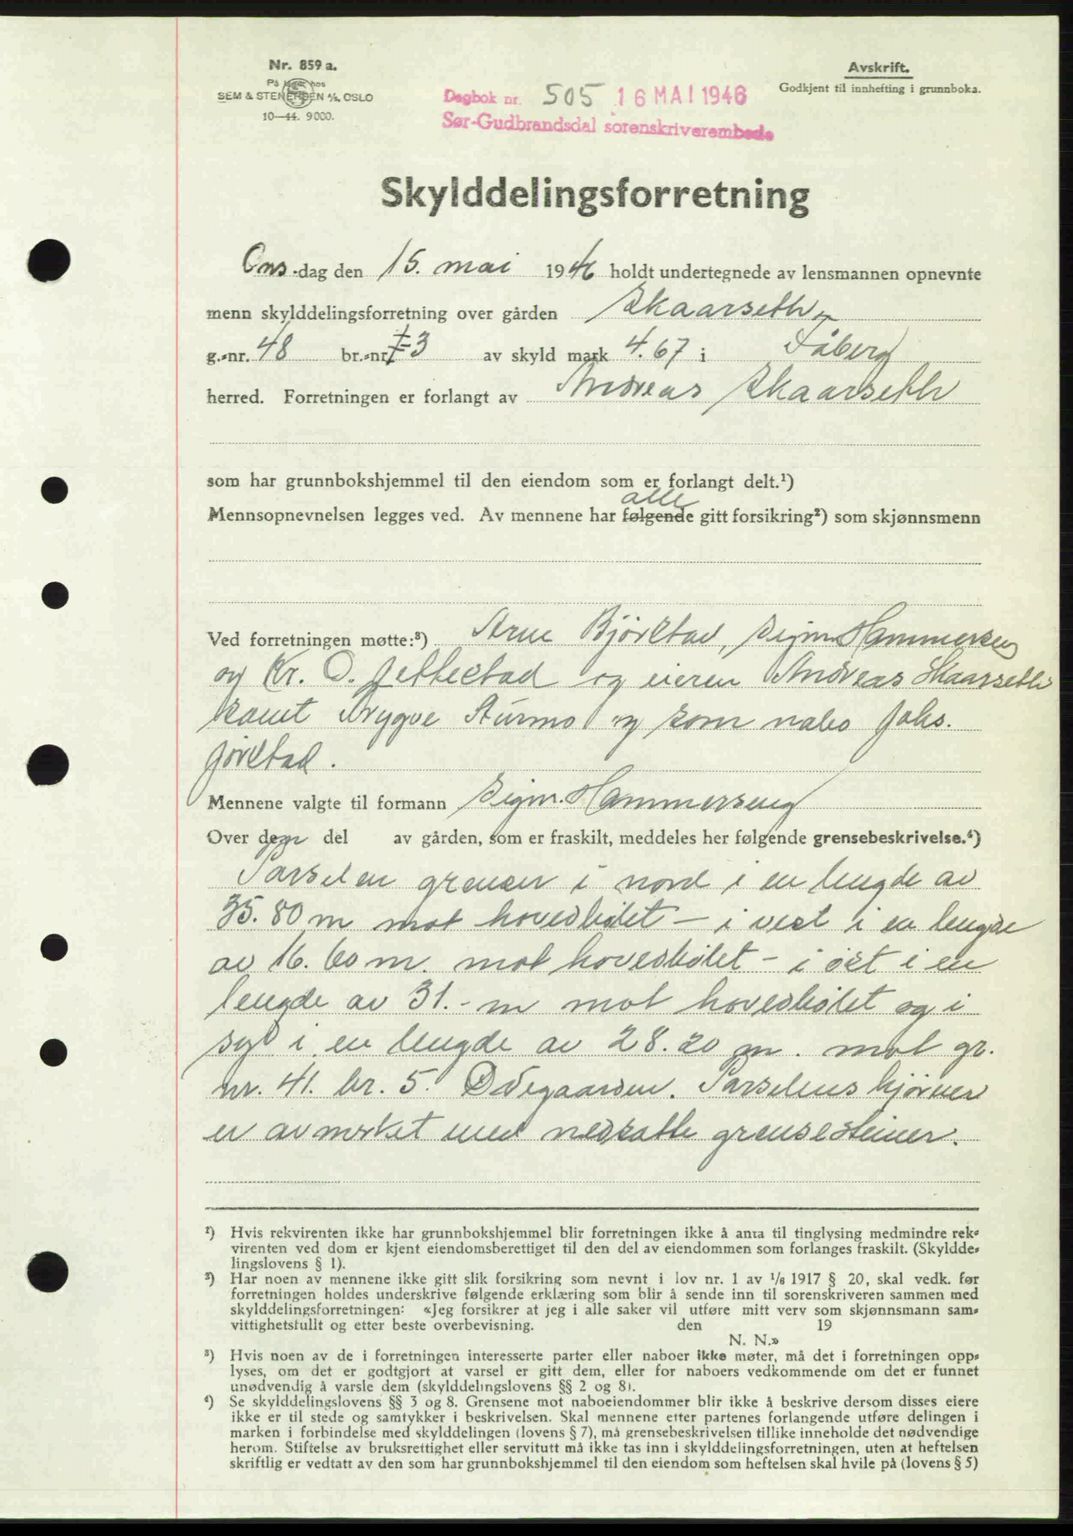 Nr. 859 a.
På lager hos
SEM & STENERSEN A/S, OSLO
10—44. 9000.
Avskrift.
Godkjent til innhefting i grunnboka.
Dagbok nr. 505 16 MAI 1946
Sør-Gudbrandsdal sorenskriverembede
Skylddelingsforretning
Ons-dag den 15. mai 1946 holdt undertegnede av lensmannen opnevnte
menn skylddelingsforretning over gården Skaarseth
g.-nr. 48 br.-nr. 3 av skyld mark 4.67 i Fåberg
herred. Forretningen er forlangt av Andreas Skaarseth
som har grunnbokshjemmel til den eiendom som er forlangt delt.¹)
alle
Mennsopnevnelsen legges ved. Av mennene har følgende gitt forsikring²) som skjønnsmenn
Ved forretningen møtte:³) Arne Bjørstad, Sigm. Hammerseng
og Kr. O. Jettestad og eieren Andreas Skaarseth
samt Trygve Aurmo og som nabo Johs.
Jørstad.
Mennene valgte til formann Sigm. Hammerseng
Over den del av gården, som er fraskilt, meddeles her følgende grensebeskrivelse.⁴)
Parselen grenser i nord i en lengde av
35.80 m mot hovedbølet – i vest i en lengde
av 16.60 m. mot hovedbølet – i øst i en
lengde av 31.- m mot hovedbølet og i
syd i en lengde av 28.20 m. mot gr.
nr. 41. br. 5. Ødegaarden. Parselens hjørner
er avmerket med nedsatte grensesteiner.
¹) Hvis rekvirenten ikke har grunnbokshjemmel blir forretningen ikke å anta til tinglysing medmindre rek-
virenten ved dom er kjent eiendomsberettiget til den del av eiendommen som forlanges fraskilt. (Skyldde-
lingslovens § 1).
²) Har noen av mennene ikke gitt slik forsikring som nevnt i lov nr. 1 av 1/6 1917 § 20, skal vedk. før
forretningen holdes underskrive følgende erklæring som blir å sende inn til sorenskriveren sammen med
skylddelingsforretningen: «Jeg forsikrer at jeg i alle saker vil utføre mitt verv som skjønnsmann sam-
vittighetsfullt og etter beste overbevisning. den 19
N. N.»
³) Hvis noen av de i forretningen interesserte parter eller naboer ikke møter, må det i forretningen opp-
lyses, om det er godtgjort at varsel er gitt dem, eller for naboers vedkommende om det er funnet
unødvendig å varsle dem (skylddelingslovens §§ 2 og 8).
⁴) Se skylddelingslovens §§ 3 og 8. Grensene mot naboeiendommer blir ikke å beskrive dersom disses eiere
ikke er til stede og samtykker i beskrivelsen. Skal mennene etter partenes forlangende utføre delingen i
marken i forbindelse med skylddelingen (lovens § 7), må grensebeskrivelsen tillike inneholde det nødvendige
herom. Stiftelse av bruksrettighet eller servitutt må ikke tas inn i skylddelingsforretningen, uten at heftelsen
skriftlig er vedtatt av den som har grunnbokshjemmel til den eiendom som heftelsen skal hvile på (lovens § 5)